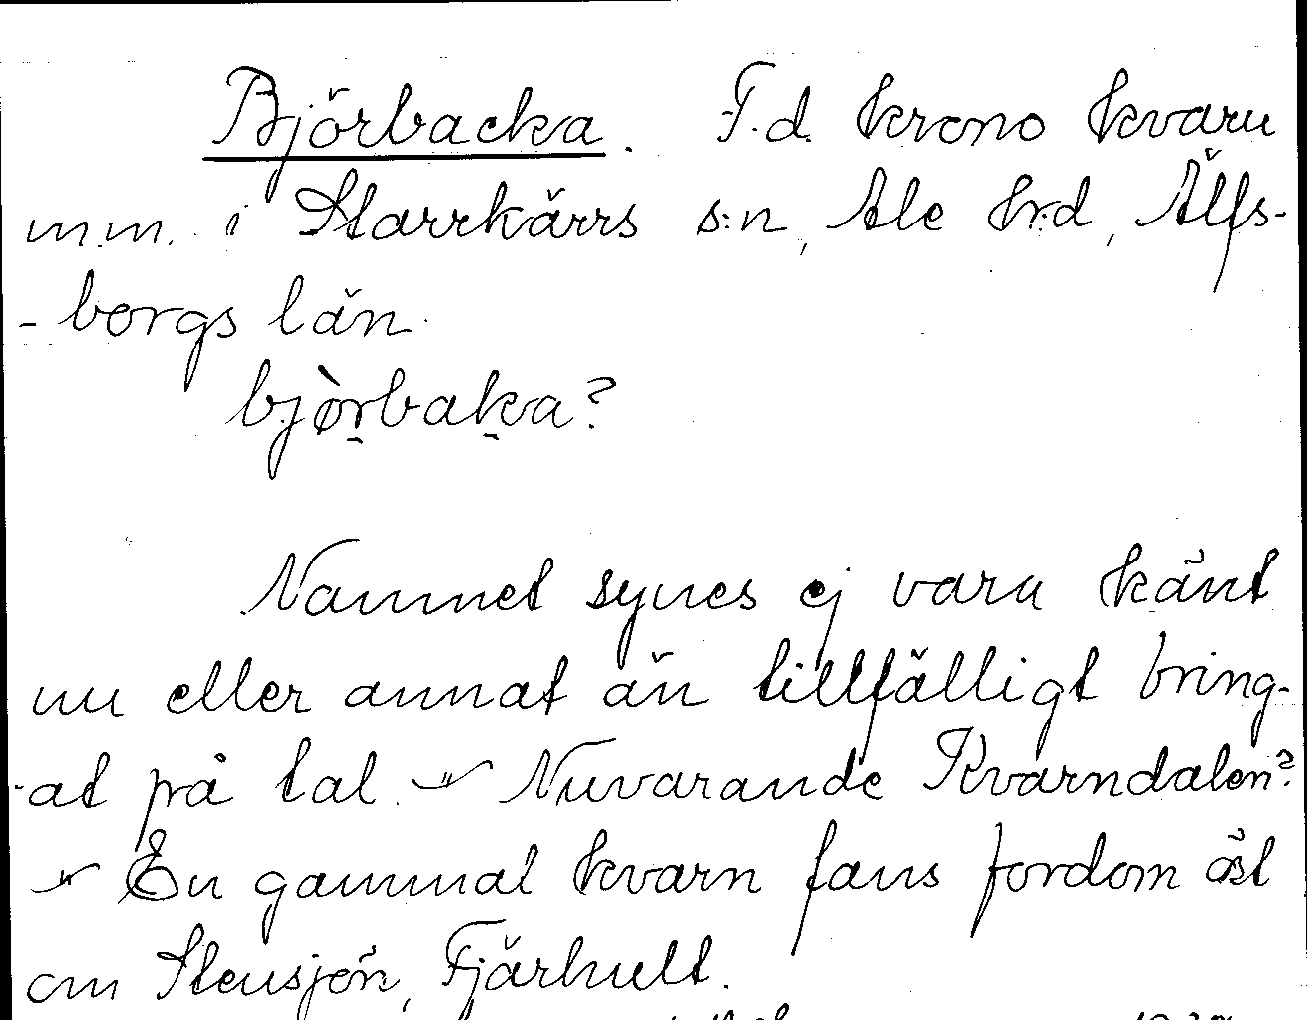 Björbacka. F.d. krono kvarn
m.m. i Starrkärrs s:n, Ale hrd, Älfs-
-borgs län.
bjòrbaka?
Namnet synes ej vara känt
nu eller annat än tillfälligt bring-
-at på tal. — Nuvarande Kvarndalen?
— En gammal kvarn fans fordom öst
om Stensjön, Fjärhult.